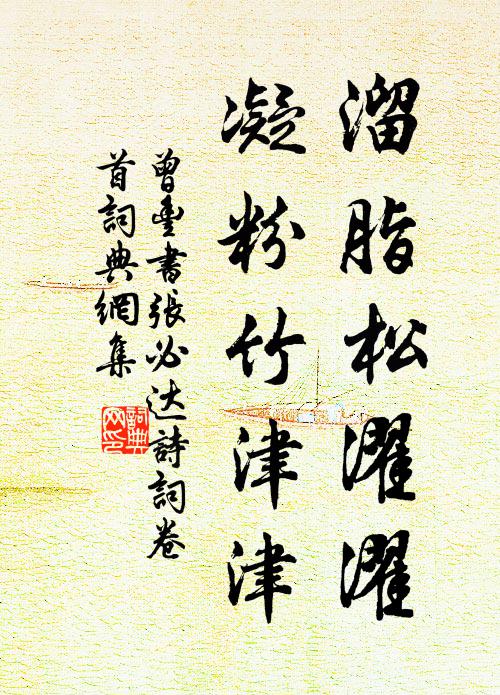 溜脂松濯濯
凝粉竹津津
曾豐書張必达詩詞卷
首詞典網集
詞典网印